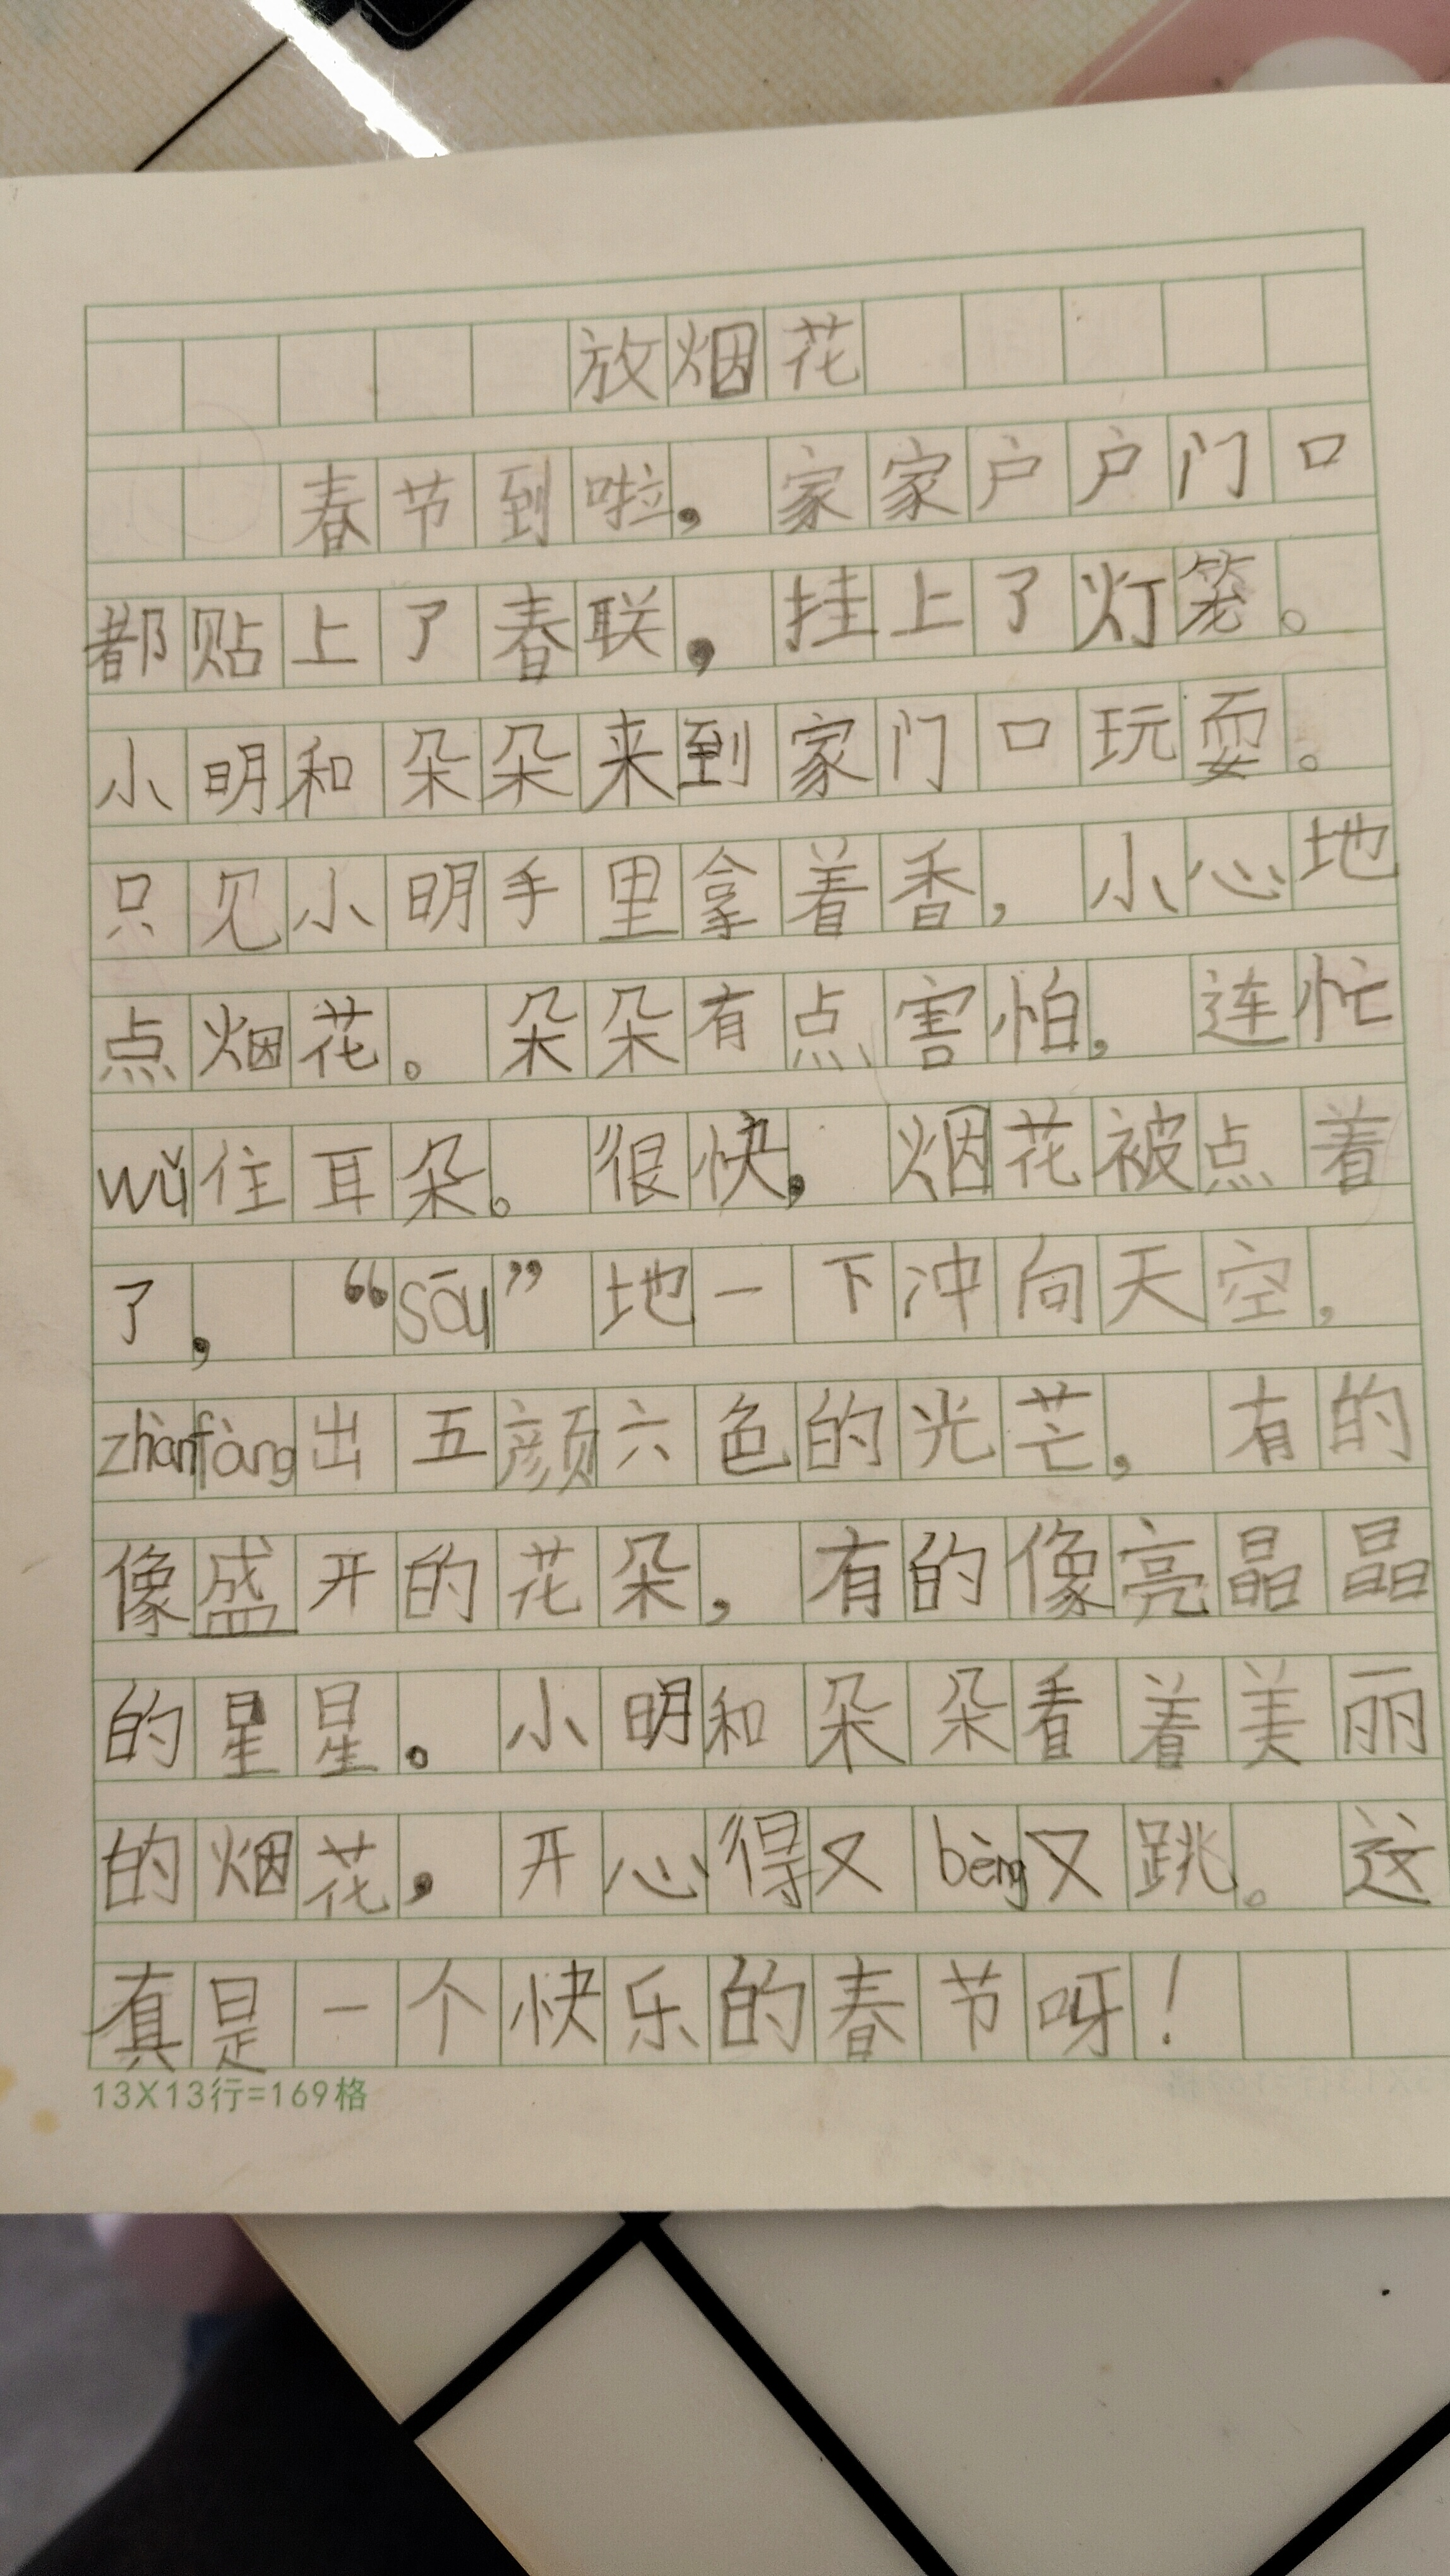 放烟花
春节到啦，家家户户门口
都贴上了春联，挂上了灯笼。
小明和朵朵来到家门口玩耍。
只见小明手里拿着香，小心地
点烟花。朵朵有点害怕，连忙
wǔ住耳朵。很快，烟花被点着
了，“sōu”地一下冲向天空，
zhànfàng出五颜六色的光芒，有的
像盛开的花朵，有的像亮晶晶
的星星。小明和朵朵看着美丽
的烟花，开心得又bèng又跳。这
真是一个快乐的春节呀！
13X13行=169格